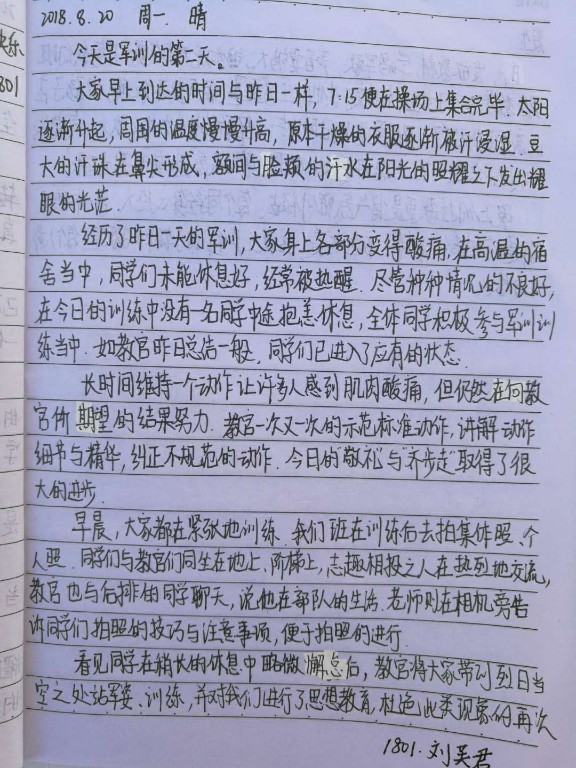 2018.8.20 周一 晴
今天是军训的第二天。
大家早上到达的时间与昨日一样，7:15便在操场上集合完毕. 太阳
逐渐升起，周围的温度慢慢升高，原本干燥的衣服逐渐被汗浸湿. 豆
大的汗珠在鼻尖形成，额间与脸颊的汗水在阳光的照耀之下发出耀
眼的光茫.
经历了昨日一天的军训，大家身上各部分变得酸痛，在高温的宿
舍当中，同学们未能休息好，经常被热醒. 尽管种种情况的不良好，
在今日的训练中没有一名同学中途抱恙休息，全体同学积极参与军训训
练当中. 如教官昨日总结一般，同学们已进入了应有的状态.
长时间维持一个动作让许多人感到肌肉酸痛，但仍然在向教
官所期望的结果努力. 教官一次又一次的示范标准动作，讲解动作
细节与精华，纠正不规范的动作. 今日的"敬礼"与"齐步走"取得了很
大的进步.
早晨，大家都在紧张地训练. 我们班在训练后去拍集体照、个
人照. 同学们与教官们同坐在地上、阶梯上，志趣相投之人在热烈地交流，
教官也与后排的同学聊天，说他在部队的生活. 老师则在相机旁告
诉同学们拍照的技巧与注意事项，便于拍照的进行.
看见同学在稍长的休息中略微懈怠后，教官将大家带到烈日当
空之处站军姿、训练，并对我们进行了思想教育，杜绝此类现象的再次
1801. 刘昊君
快乐
801